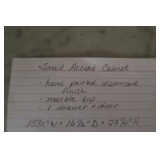 Small Accent Cabinet
- hand painted diamond
finish
- marble top
- 1 drawer + door
15¾"W x 16¼"D x 29¾"H